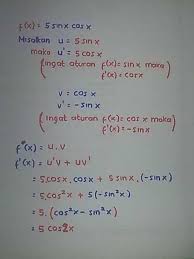 f(x) = 5 sin x cos x
Misalkan u = 5 sin x
maka u' = 5 cos x
(Ingat aturan f(x) = sin x maka
f'(x) = cos x)
v = cos x
v' = -sin x
(Ingat aturan f(x) = cos x maka
f'(x) = -sin x)
f(x) = u.v
f'(x) = u'v + uv'
= 5.cos x.cos x + 5 sin x.(-sin x)
= 5.cos²x + 5(-sin²x)
= 5.(cos²x - sin²x)
= 5 cos 2x